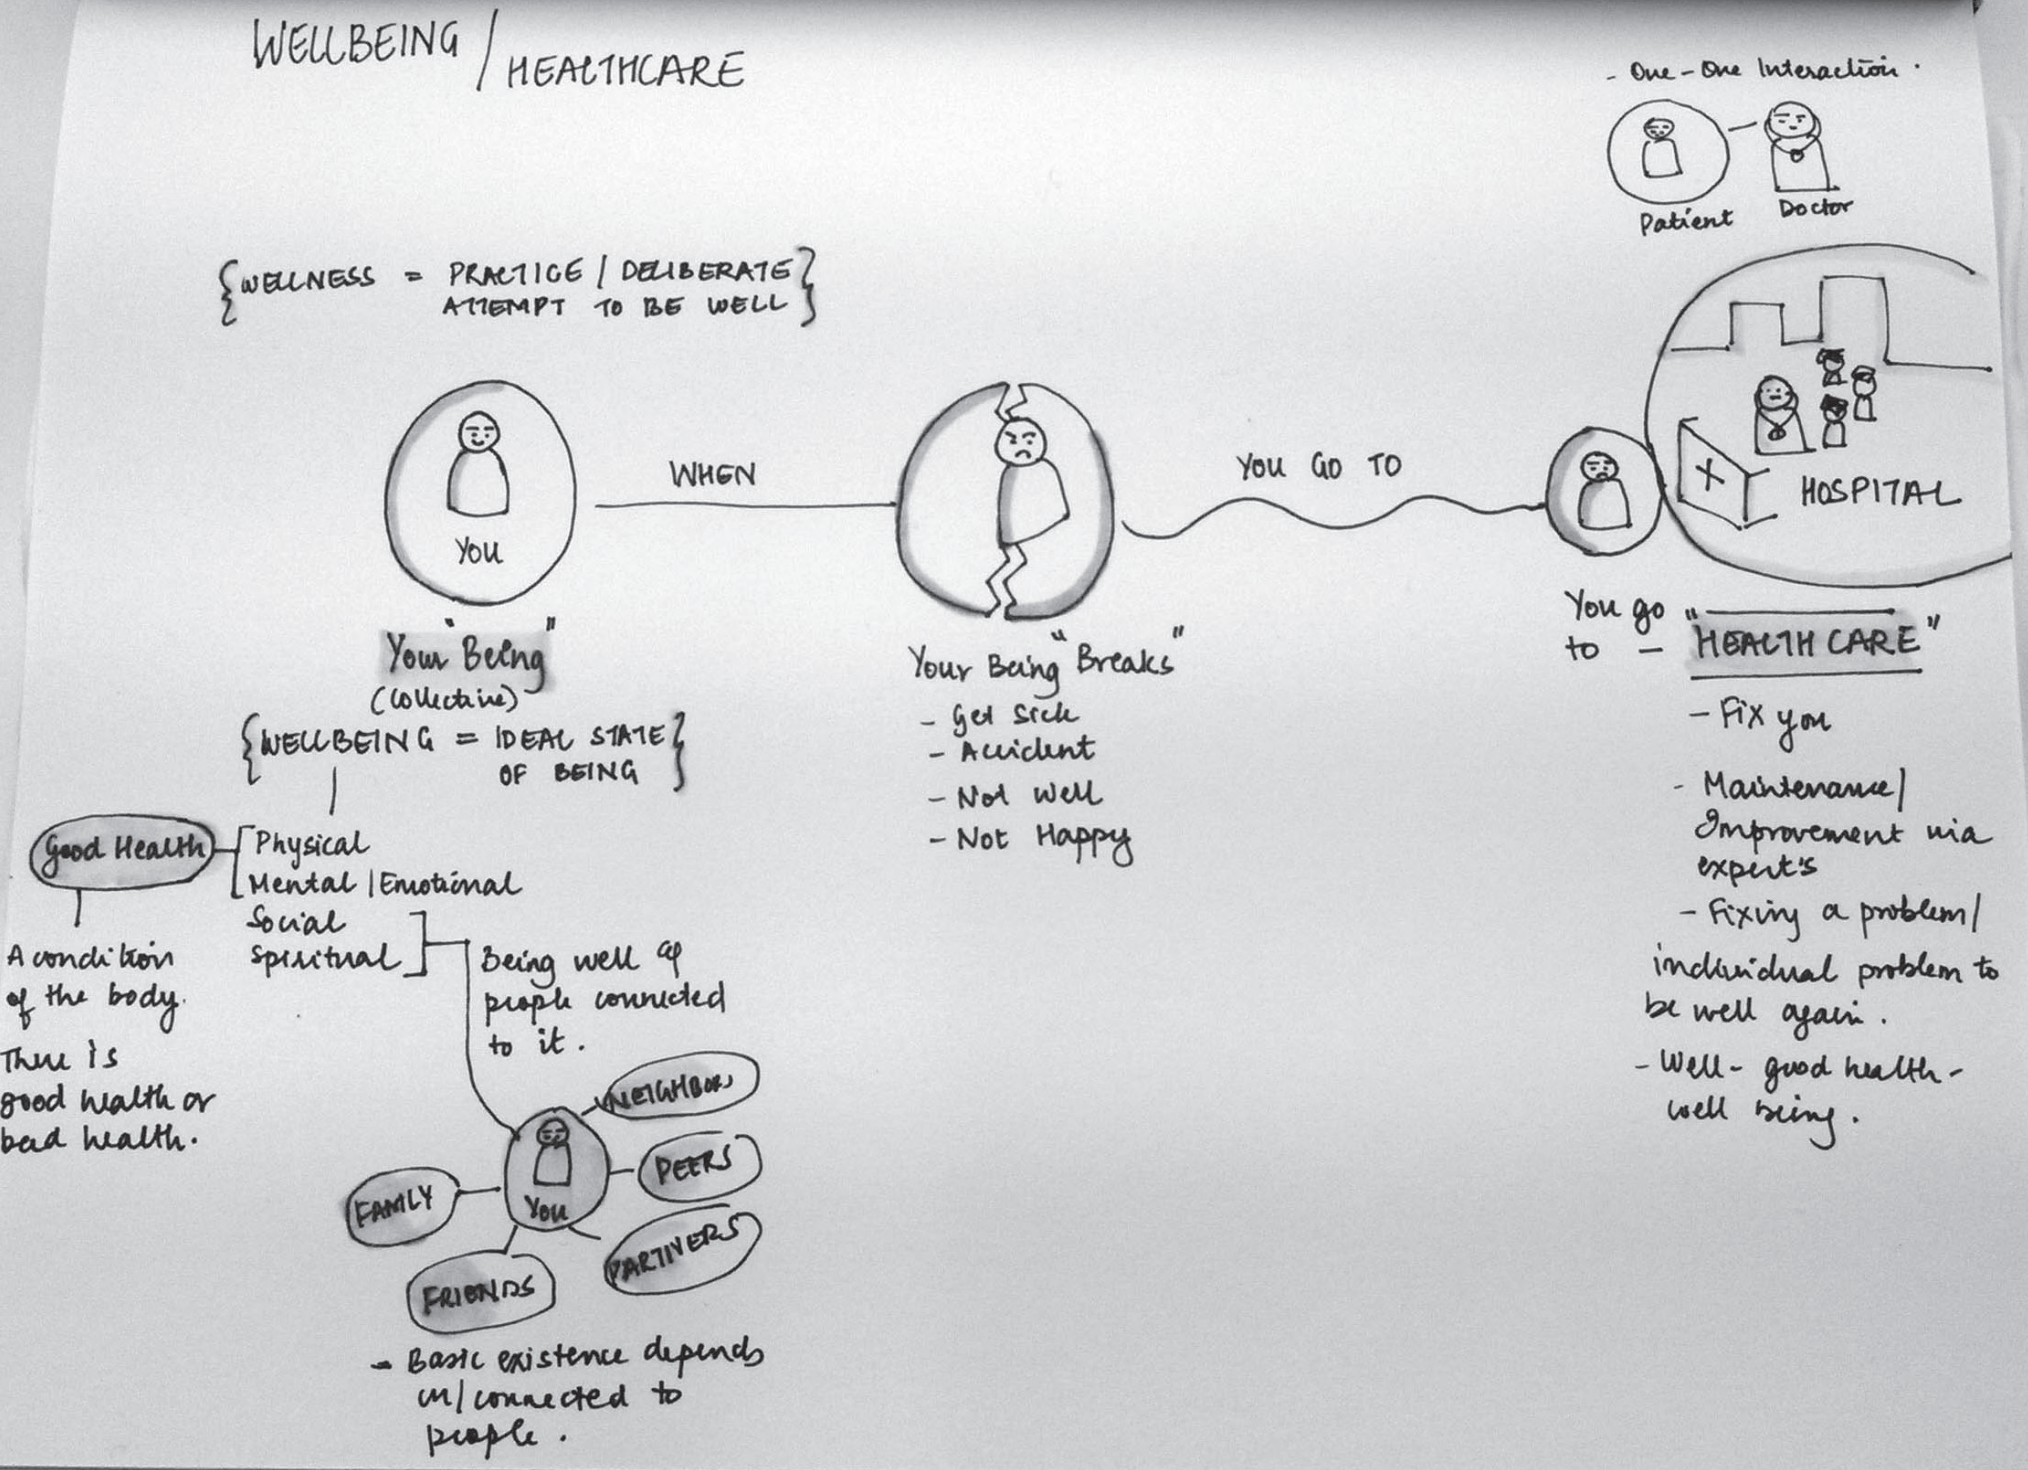 WELLBEING / HEALTHCARE
- One-One Interaction.
Patient
Doctor
{WELLNESS = PRACTICE / DELIBERATE
ATTEMPT TO BE WELL}
YOU
WHEN
YOU GO TO
X
HOSPITAL
Your "Being"
(Collective)
{WELLBEING = IDEAL STATE
OF BEING}
Good Health
Physical
Mental / Emotional
Social
Spiritual
A condition
of the body.
There is
good health or
bad health.
Being well of
people connected
to it.
NEIGHBORS
PEERS
PARTNERS
FRIENDS
FAMILY
You
- Basic existence depends
on/connected to
people.
Your Being "Breaks"
- Get Sick
- Accident
- Not well
- Not Happy
You go
to - "HEALTH CARE"
- Fix you
- Maintenance/
Improvement via
expert's
- Fixing a problem/
individual problem to
be well again.
- Well - good health -
well being.